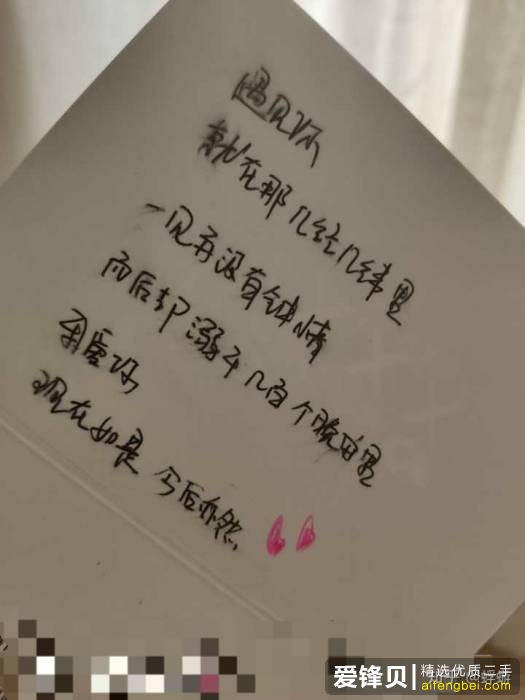 遇见你
就在那几经几纬里
一见再没有钟情
而后却溺于几百个晚的里
我爱你
现在如是 今后亦然
爱锋贝 精选优质二手
aifengbei.com